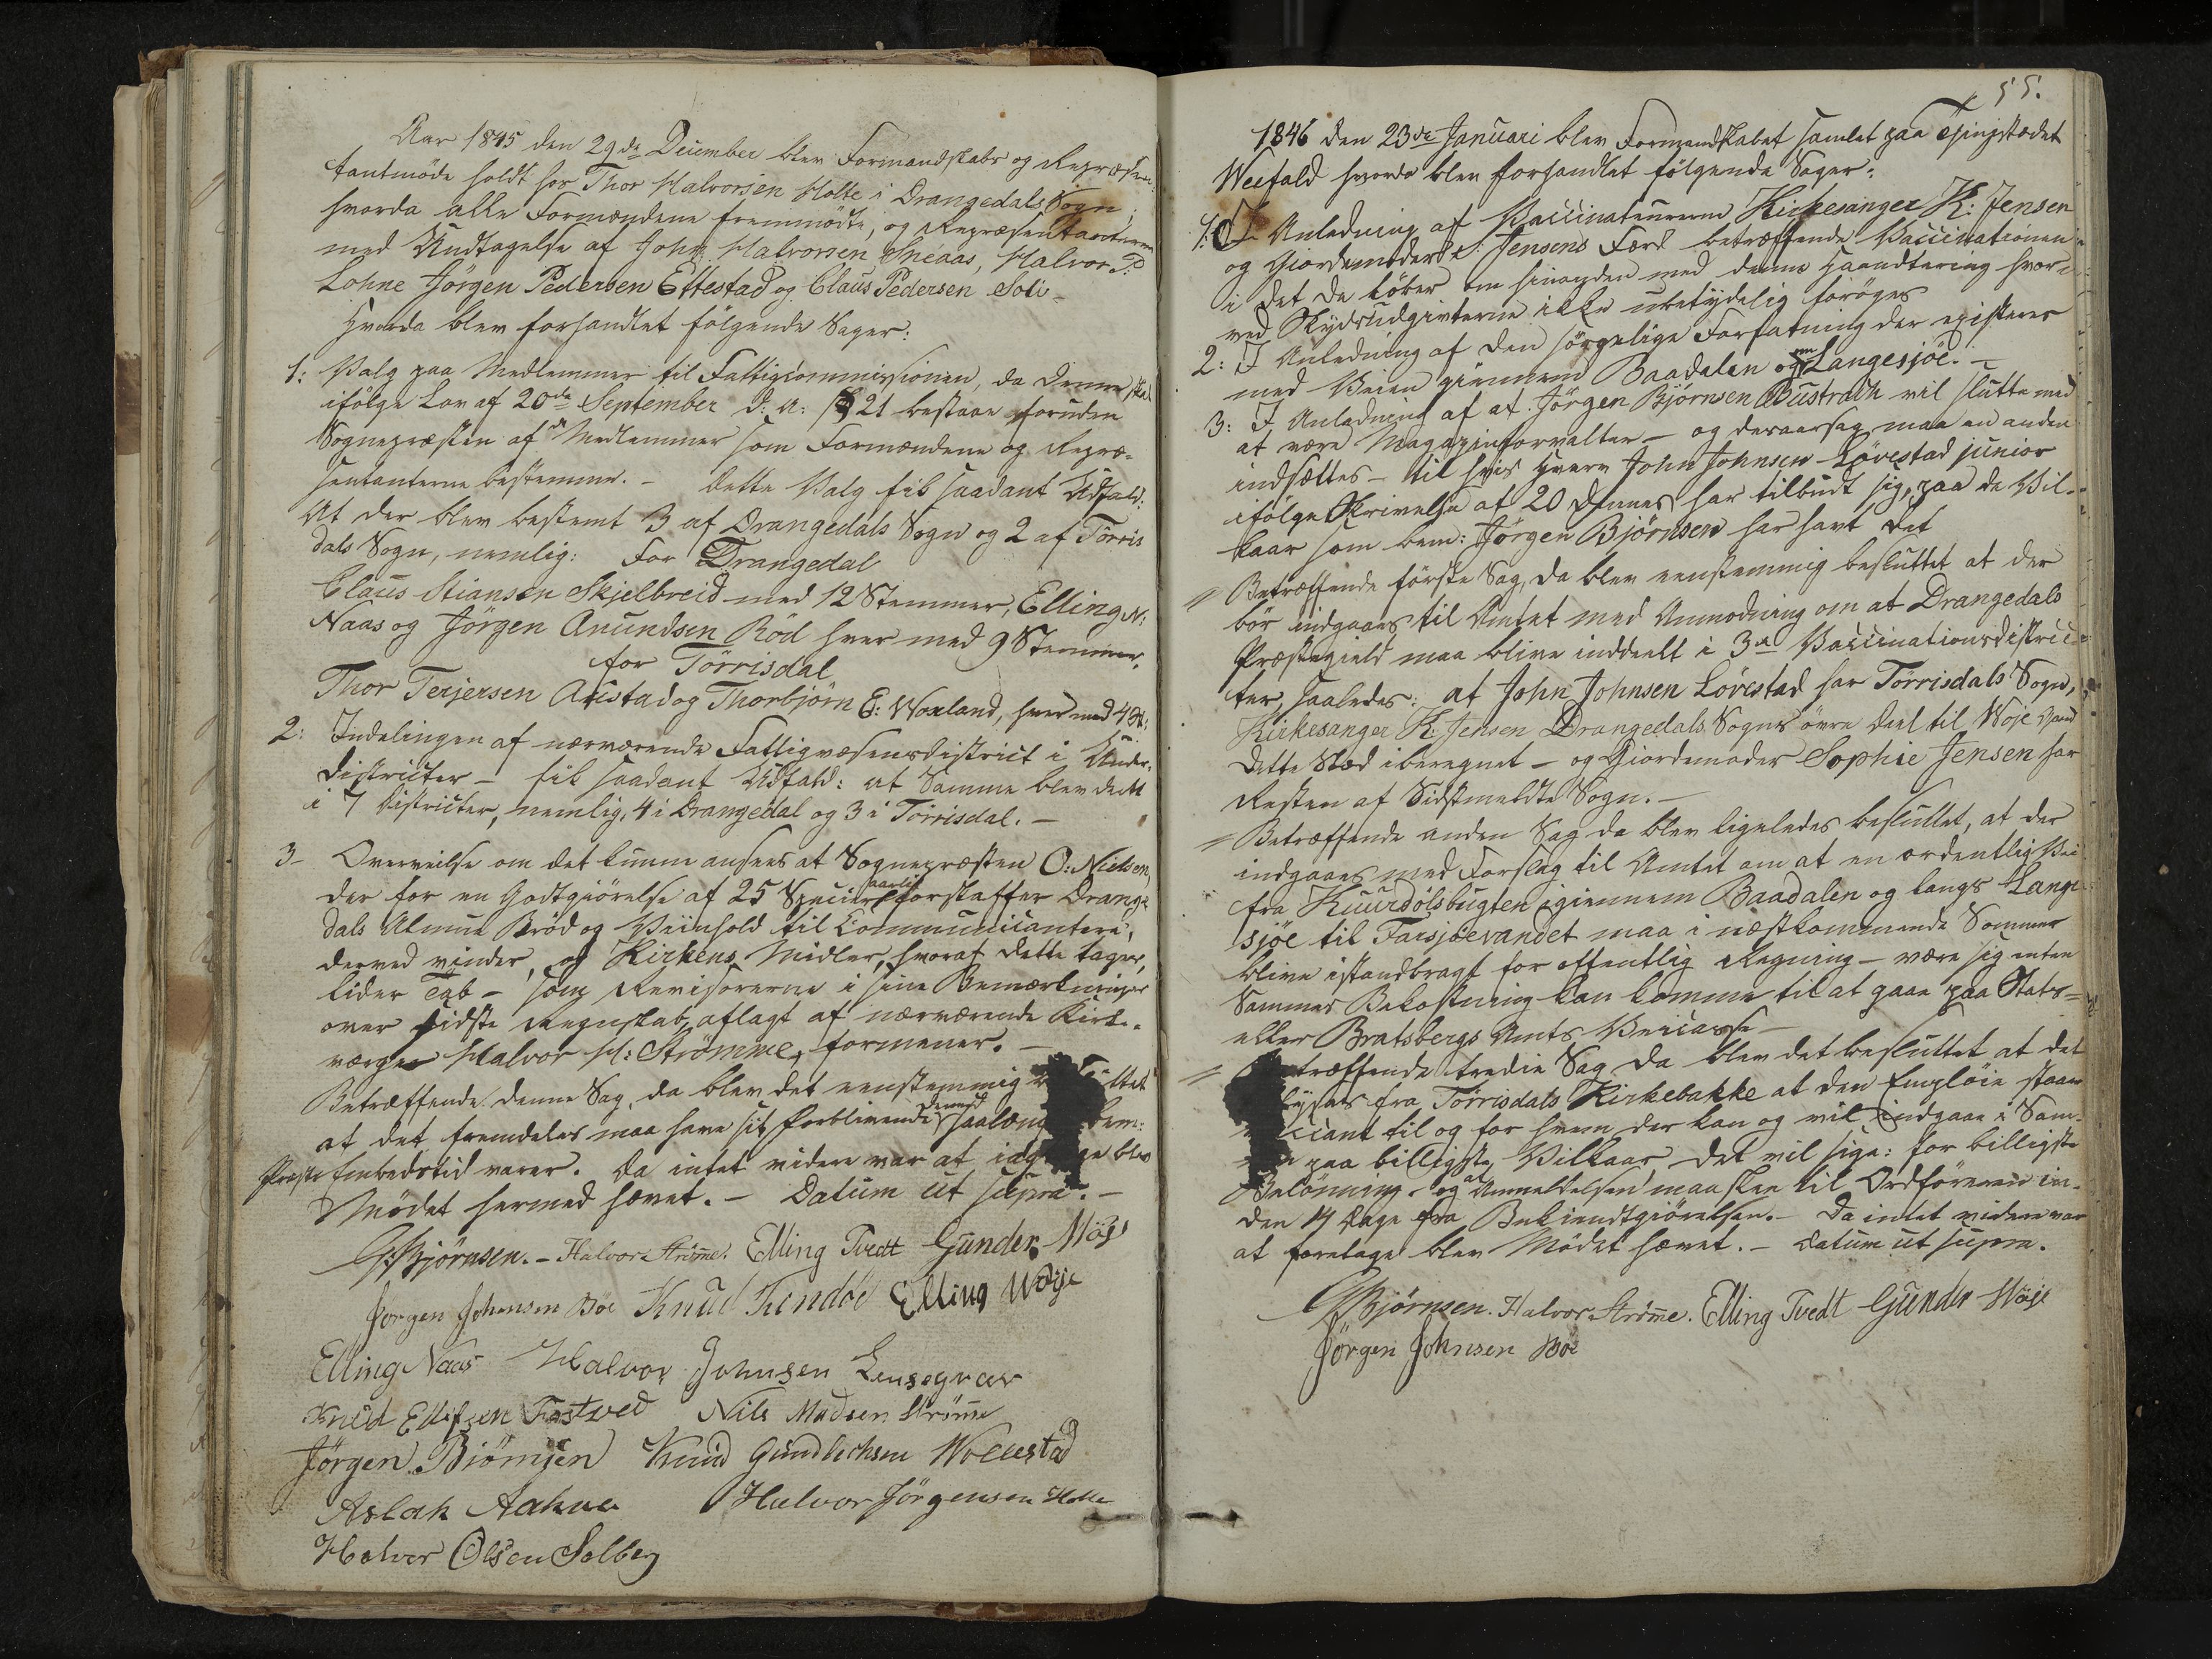 Aar 1845 den 29de December blev Formandskabs og Repræsen-
tantmöde holdt hos Thor Halvorsen Holte i Drangedals Sogn,
hvorda alle Formændene fremmödte, og Repræsentanterne
med Undtagelse af John Halvorsen Sneaas, Halvor P:
Lohne Jörgen Pedersen Ettestad og Claus Pedersen
Hvorda blev forhandlet fölgende Sager:
1: Valg paa Medlemmer til Fattigcommissionen, da denne skal
ifölge Lov af 20de September d: A: bestaae foruden
Sognepræsten af de Medlemmer som Formændene og Repræ-
sentanterne bestemme. – Dette Valg fik saadant Udfald:
At der blev bestemt 3 af Drangedals Sogn og 2 af Törris
dals Sogn, nemlig: For Drangedal
Claus Stiansen Skjelbreid med 12 Stemmer, Elling N:
Naas og Jörgen Anundsen Röd hver med 9 Stemmer.
for Törrisdal
Thor Terjersen Austad og Thorbjörn E: Woxland, hver med 4 St:
2: Indelingen af nærværende Fattigvæsensdistrict i Under-
districter – fik saadant Udfald: at Samme blev deelt
i 7 Districter, nemlig, 4 i Drangedal og 3 i Törrisdal. –
3– Overveielse om det kunne ansees at Sognepræsten O: Nielsen,
der for en Godtgiörelse af 25 Specier aarlig forskaffer Drange
dals Almue Bröd og Viinhold til Communicantere,
derved vinder, og Kirkens Midler, hvoraf dette tages,
lider Tab – som Revisorerne i sine Bemærkninger
over sidste Regnskab, aflagt af nærværende Kirke-
værger Halvor H: Strömme, formener. –
Betræffende denne Sag, da blev det eenstemmig
at det fremdeles maa have sit Forblivende dermed saalænge bem:
Præsts Embedstid varer. Da intet videre var at blev
Mödet hermed hævet. – Datum ut supra. –
G Bjørnsen. – Halvor Strömme. Elling Tvedt Gunder Höje
Jörgen Johnsen Böe Knud Elling Wöje
Elling Naas Halvor Johnsen
Knud Ellifsen Tostved Nils Madsen Strömme
Jörgen Biörnsen Knud Gundlechsen Wollestad
Aslak Halvor Jörgensen Holte
Halvor Olsen Solberg
55.
1846 den 23de Januari blev Formandskabet samlet paa Thingstædet
Weefald hvorda blev forhandlet fölgende Sager:
1: I Anledning af Vaccinateurerne Kirkesanger K: Jensen
og Giordemoder S: Jensens Færd betræffende Vaccinationen
i det de löber om hinanden med denne Haandtering hvor-
ved Skydsudgivterne ikke ubetydelig foröges
2: I Anledning af den sörgelige Forfatning der existerer
med Veien giennem Baadalen og om Langesjöe. –
3: I Anledning af at Jörgen Björnsen Bustrack vil slutte med
at være Magazinforvalter – og desaarsag maa en anden
indsættes – til hvis Hverv John Johnsen Lövestad junior
ifölge Skrivelse af 20 dennes har tilbudt sig, paa de Vil-
kaar som bem: Jörgen Björnsen har havt det
Betræffende förste Sag, da blev eenstemmig besluttet at der
bör indgaaes til Amtet med Anmodning om at Drangedals
Præstegield maa blive inddeelt i 3de Vaccinationsdistric-
ter, saaledes: at John Johnsen Lövestad har Törrisdals Sogn,
Kirkesanger K: Jensen Drangedals Sogns övre Deel til Wöje Vand
dette Stæd iberegnet – og Giordemoder Sophie Jensen har
Resten af Sidstmeldte Sogn. –
Betræffende anden Sag da blev ligeledes besluttet, at der
indgaaes med Forslag til Amtet om at en ordentlig Vei
fra Kuurdölsbugten igiennem Baadalen og langs Lange
sjöe til Farsjöevandet maa i næstkommende Sommer
blive istandbragt for offentlig Regning – være sig enten
Sammes Bekostning kan komme til at gaae paa Stats-
eller Bratsbergs Amts Veicasse –
træffende tredie Sag da blev det besluttet at det
lyses fra Törrisdals Kirkebakke at den Emploie staaer
vacant til og for hvem der kan og vil indgaae i Sam-
me paa billigste Vilkaar, det vil sige: for billigste
Belönning – og at Anmeldelsen maa skee til Ordföreren in-
den 14 Dage fra Bekiendtgiörelsen. – Da intet videre var
at foretage blev Mödet hævet. – Datum ut supra.
G Bjørnsen. Halvor Strömme. Elling Tvedt Gunder Höje
Jörgen Johnsen Böe